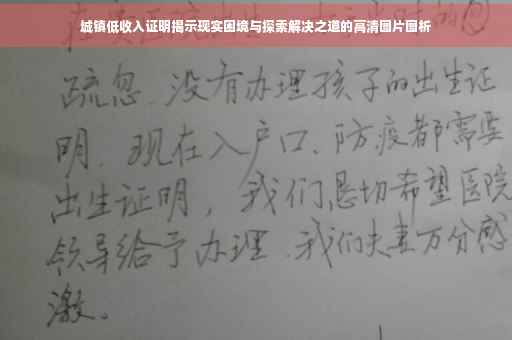 城镇低收入证明揭示现实困境与探索解决之道的高清图片图析
疏忽、没有办理孩子的出生证
明。现在入户口、防疫都需要
出生证明，我们恳切希望医院
领导给予办理、我们夫妻万分感
激。